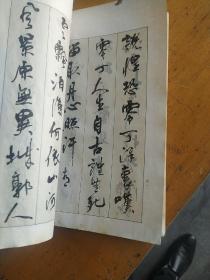 說惶恐零丁洋裏嘆
零丁人生自古誰無死
留取丹心照汗青
飄泊復何依山河
風景原無異城郭人